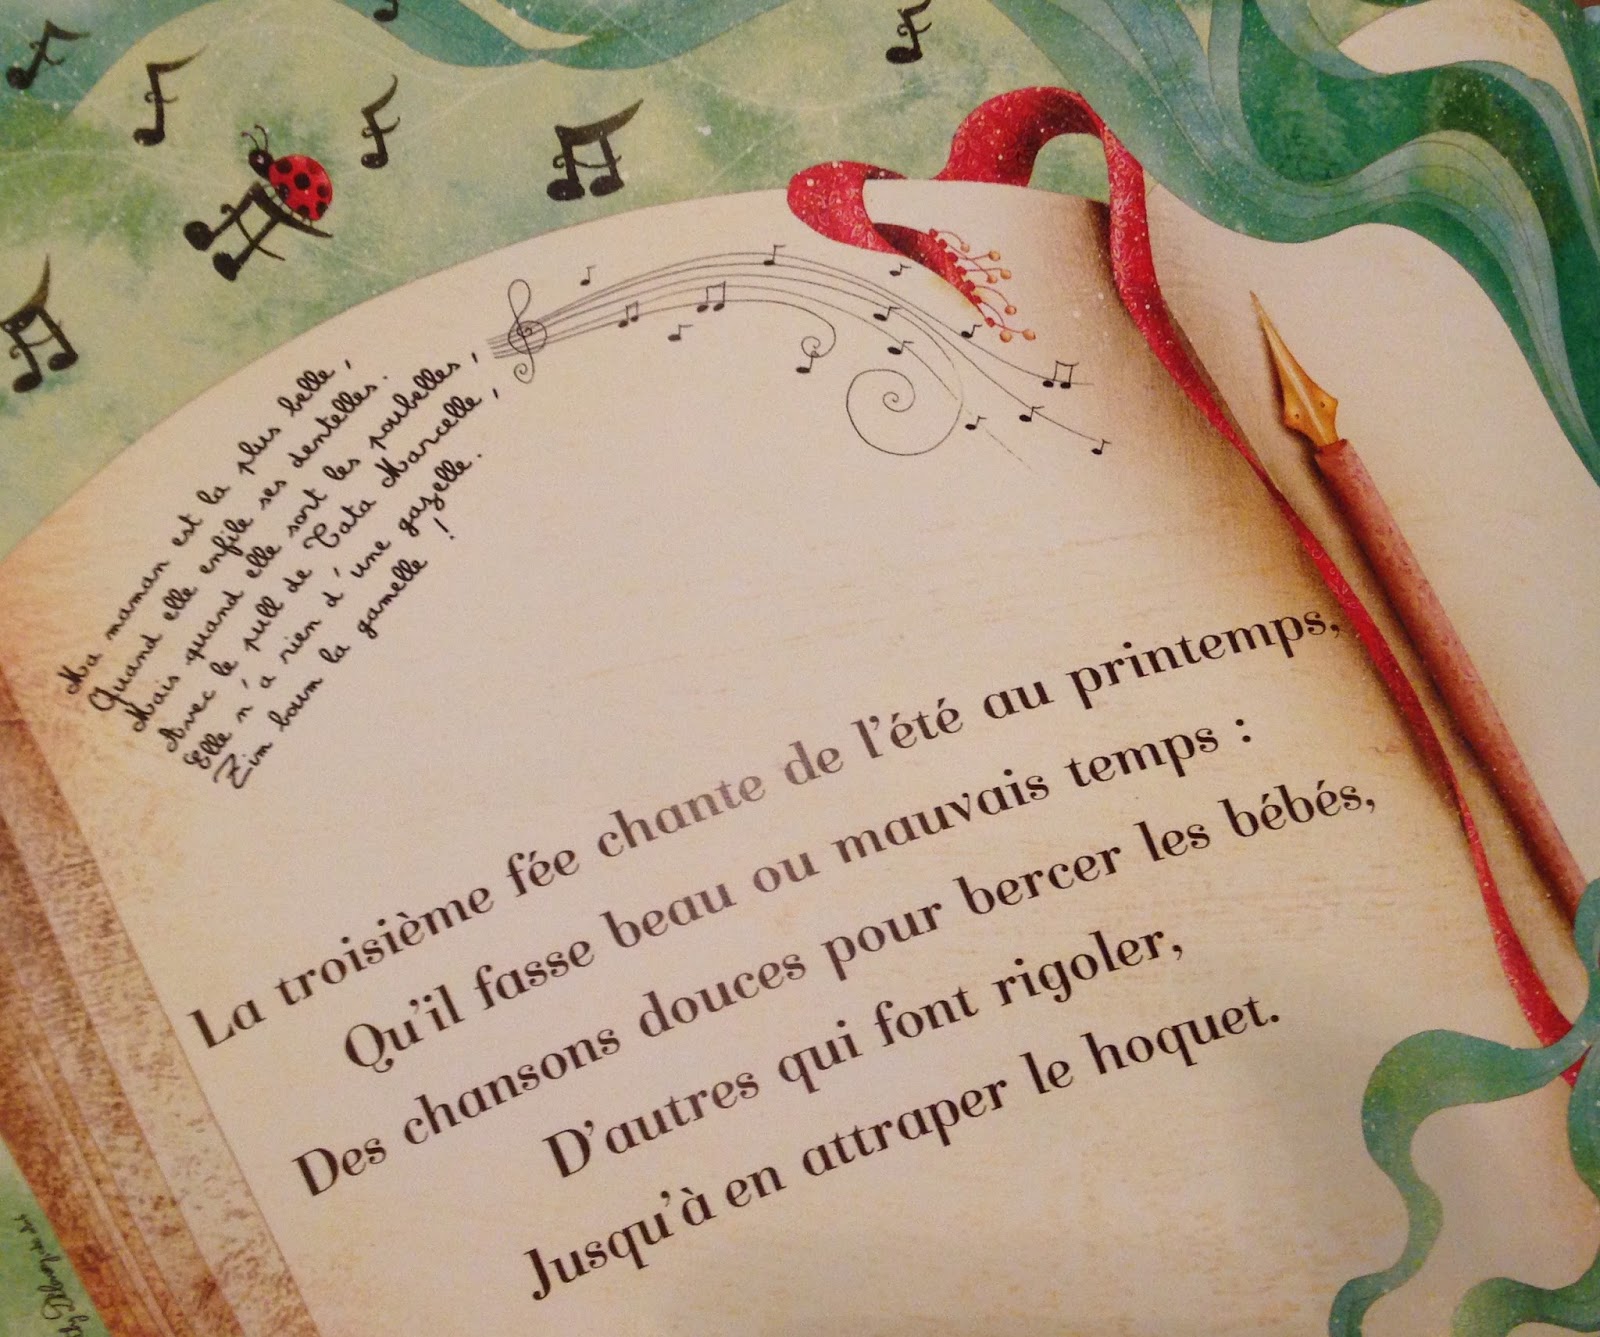 Ma maman est la plus belle,
Quand elle enfile ses dentelles.
Mais quand elle sort les poubelles,
Avec le pull de Tata Marcelle,
Elle n'a rien d'une gazelle.
Zim boum la gamelle !
La troisième fée chante de l'été au printemps,
Qu'il fasse beau ou mauvais temps :
Des chansons douces pour bercer les bébés,
D'autres qui font rigoler,
Jusqu'à en attraper le hoquet.